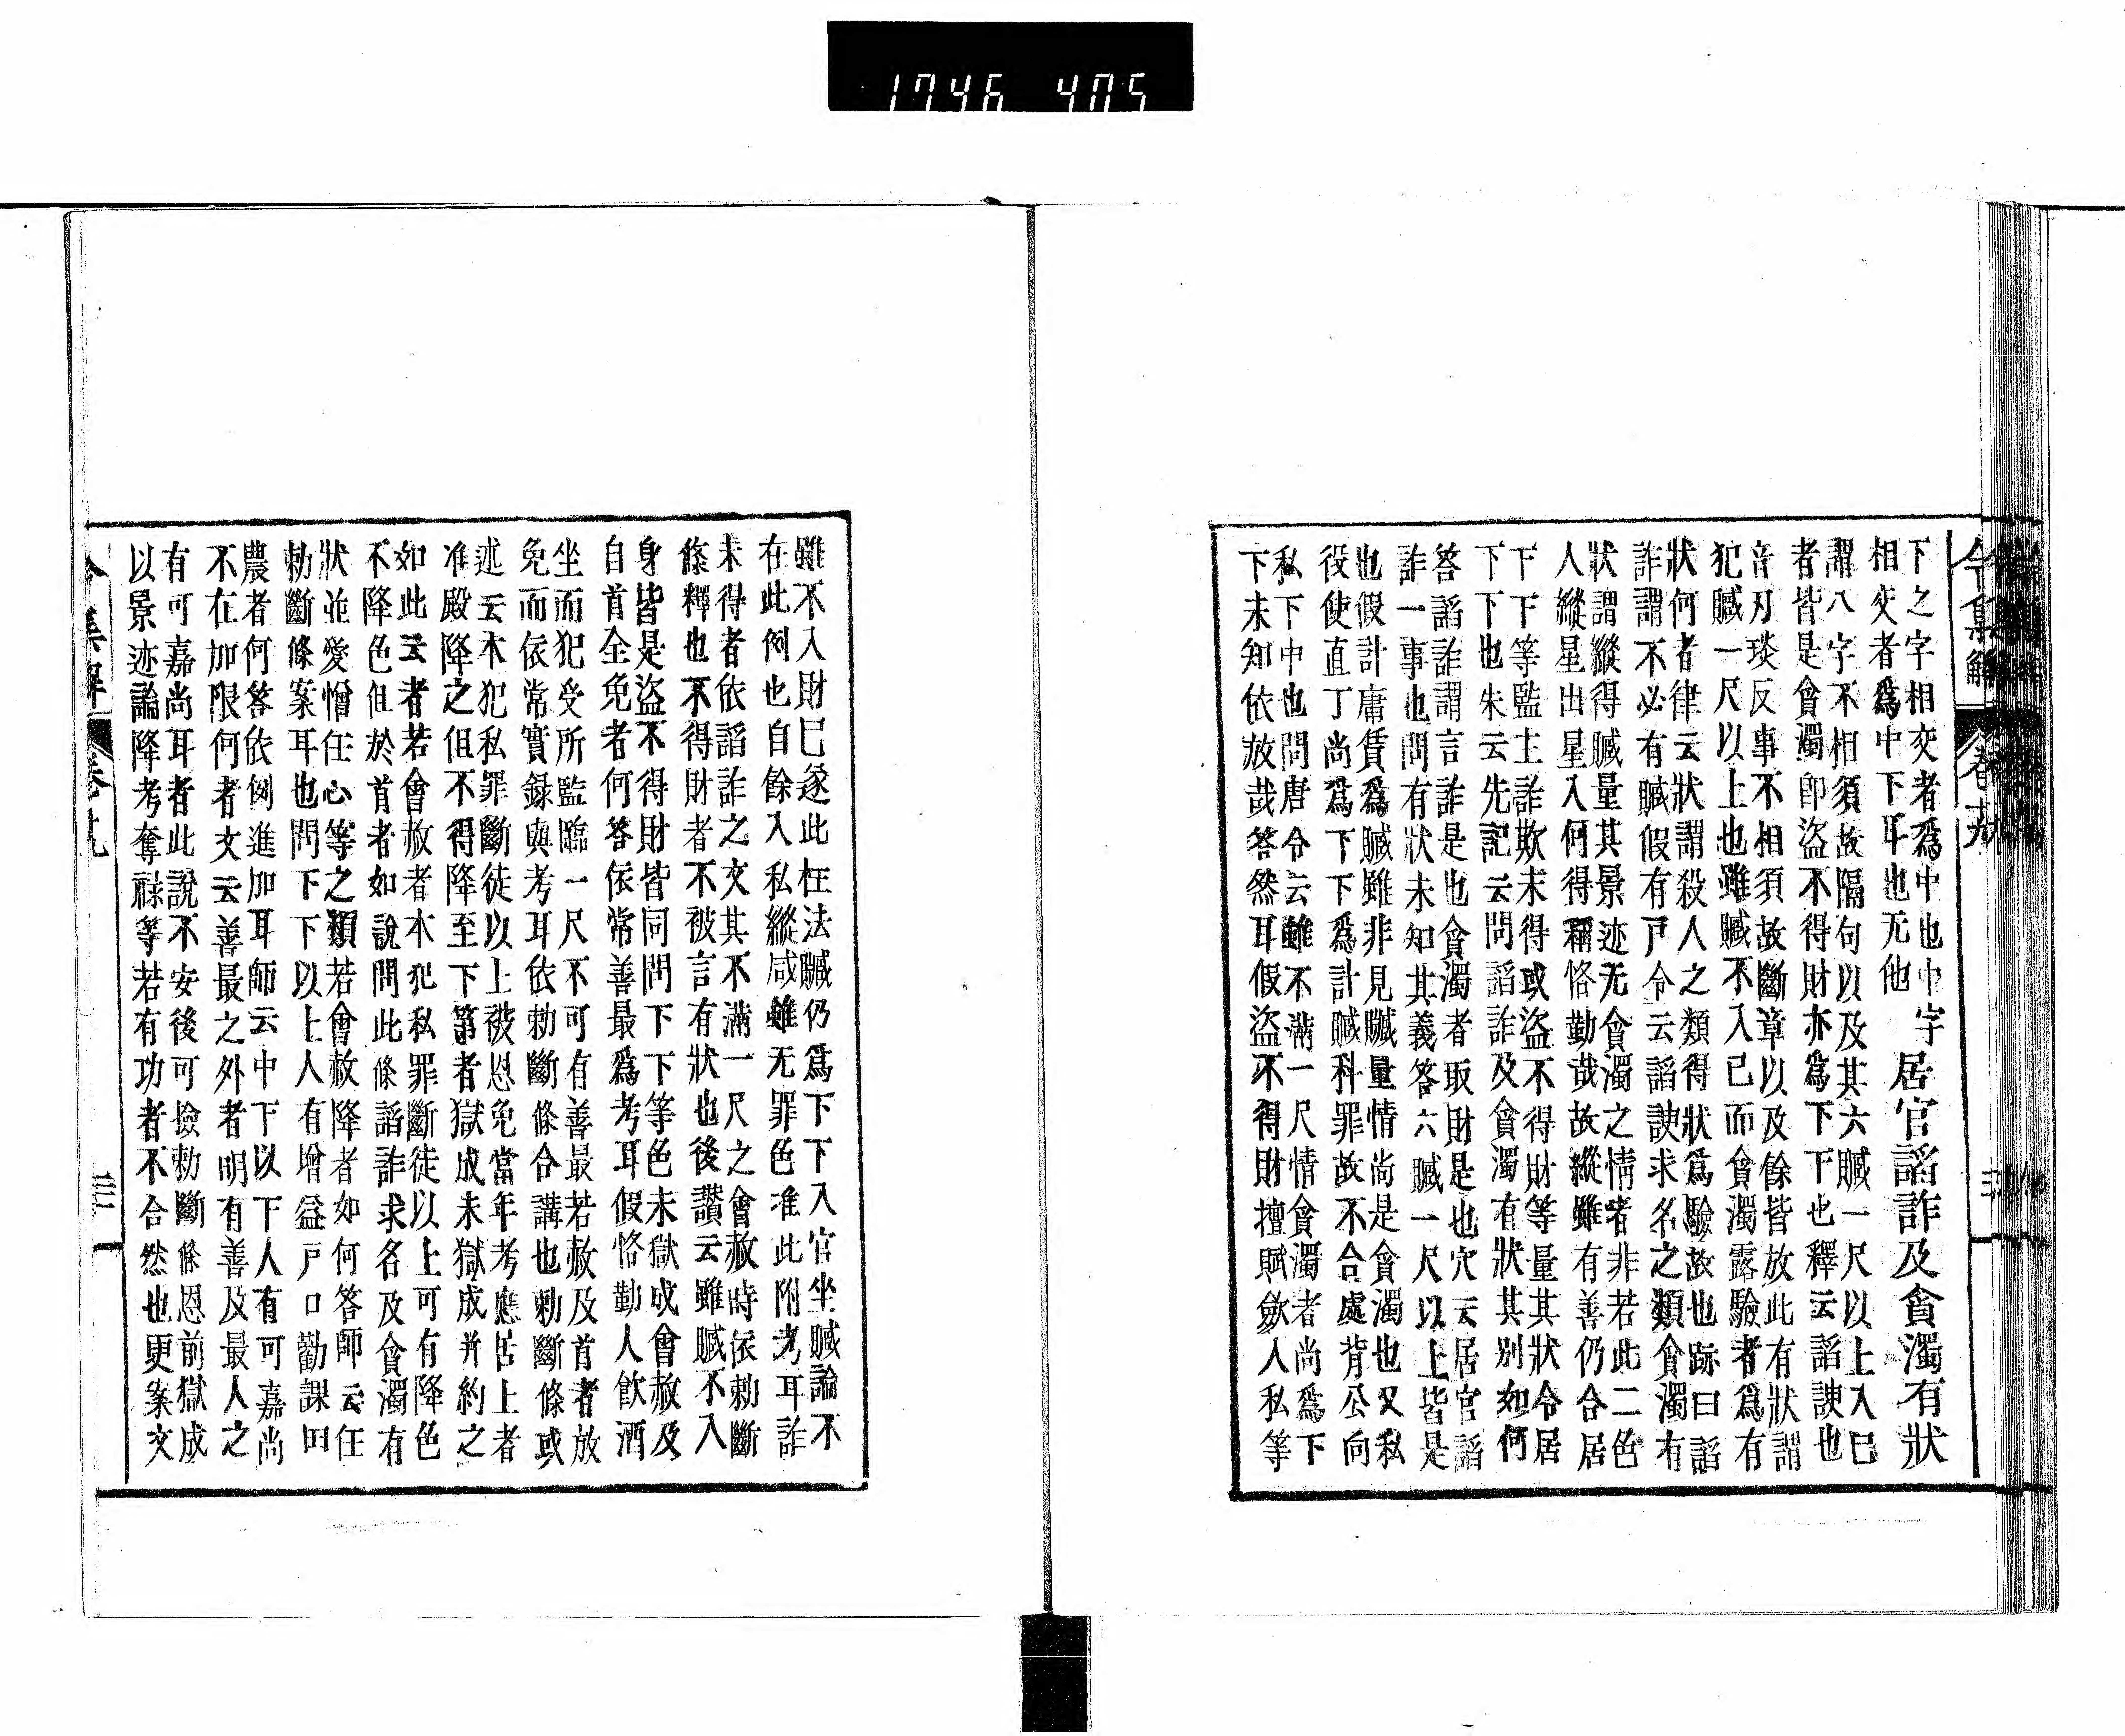 1746 405
令集解
卷十九
下之字相交者爲中也中字
相交者爲中下耳也无他
居官諂詐及貪濁有狀
謂八字不相須故隔句以及其六贓一尺以上入已
者皆是貪濁即盜不得財亦爲下下也釋云諂諛也
音丑琰反事不相須故斷章以及餘皆放此有狀謂
犯贓一尺以上也雖贓不入已而貪濁露驗者爲有
狀何者律云狀謂殺人之類得狀爲驗故也跡曰諂
詐謂不必有贓假有戸令云諂諛求名之類貪濁有
狀謂縱得贓量其景迹无貪濁之情者非若此二色
人縱星出星入何得稱恪勤哉故縱雖有善仍合居
下下等監主詐欺未得或盜不得財等量其狀令居
下下也朱云先記云問諂詐及貪濁有狀其別如何
答諂詐謂言詐是也貪濁者取財是也穴云居官諂
詐一事也問有狀未知其義答六贓一尺以上皆是
也假計庸賃爲贓雖非見贓量情尚是貪濁也又私
役使直丁尚爲下下爲計贓科罪故不合處背公向
私下中也問唐令云雖不滿一尺情貪濁者尚爲下
下未知依放哉答然耳假盜不得財擅賦斂入私等
雖不入財已遂此枉法贓仍爲下下入官坐贓論不
在此例也自餘入私縱咸雖无罪色准此附考耳詐
未得者依諂詐之文其不滿一尺之會赦時依勅斷
條釋也不得財者不被言有狀也後讃云雖贓不入
身皆是盜不得財皆同問下下等色未獄成會赦及
自首全免者何答依常善最爲考耳假恪勤人飮酒
坐而犯受所監臨一尺不可有善最若赦及首者放
免而依常實録與考耳依勅斷條合講也勅斷條或
述云本犯私罪斷徒以上被恩免當年考應居上者
准殿降之但不得降至下第者獄成未獄成并約之
如此云者若會赦者本犯私罪斷徒以上可有降色
不降色但於首者如說問此條諂詐求名及貪濁有
狀並愛憎任心等之類若會赦降者如何答師云任
勅斷條案耳也問下下以上人有增益戸口勸課田
農者何答依例進加耳師云中下以下人有可嘉尚
不在加限何者文云善最之外者明有善及最人之
有可嘉尚耳者此說不安後可撿勅斷條恩前獄成
以景迹論降考奪祿等若有功者不合然也更案文